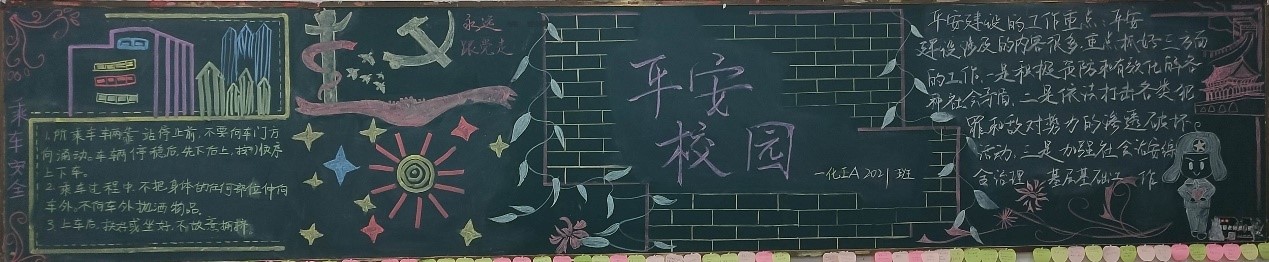 乘车安全
1.所乘车车辆靠站停止前,不要向车门方
向涌动。车辆停稳后,先下后上,按顺序
上下车。
2.乘车过程中,不把身体的任何部位伸向
车外,不向车外抛洒物品。
3.上车后,扶好或坐好,不故意拥挤。
永远
跟党走
平安
校园
一化工A 2021 班
平安建设的工作重点:平安
建设涉及的内容很多,重点抓好三方面
的工作,一是积极预防和有效化解各
种社会矛盾,二是依法打击各类犯
罪和敌对势力的渗透破坏
活动,三是加强社会治安综
合治理,基层基础工作